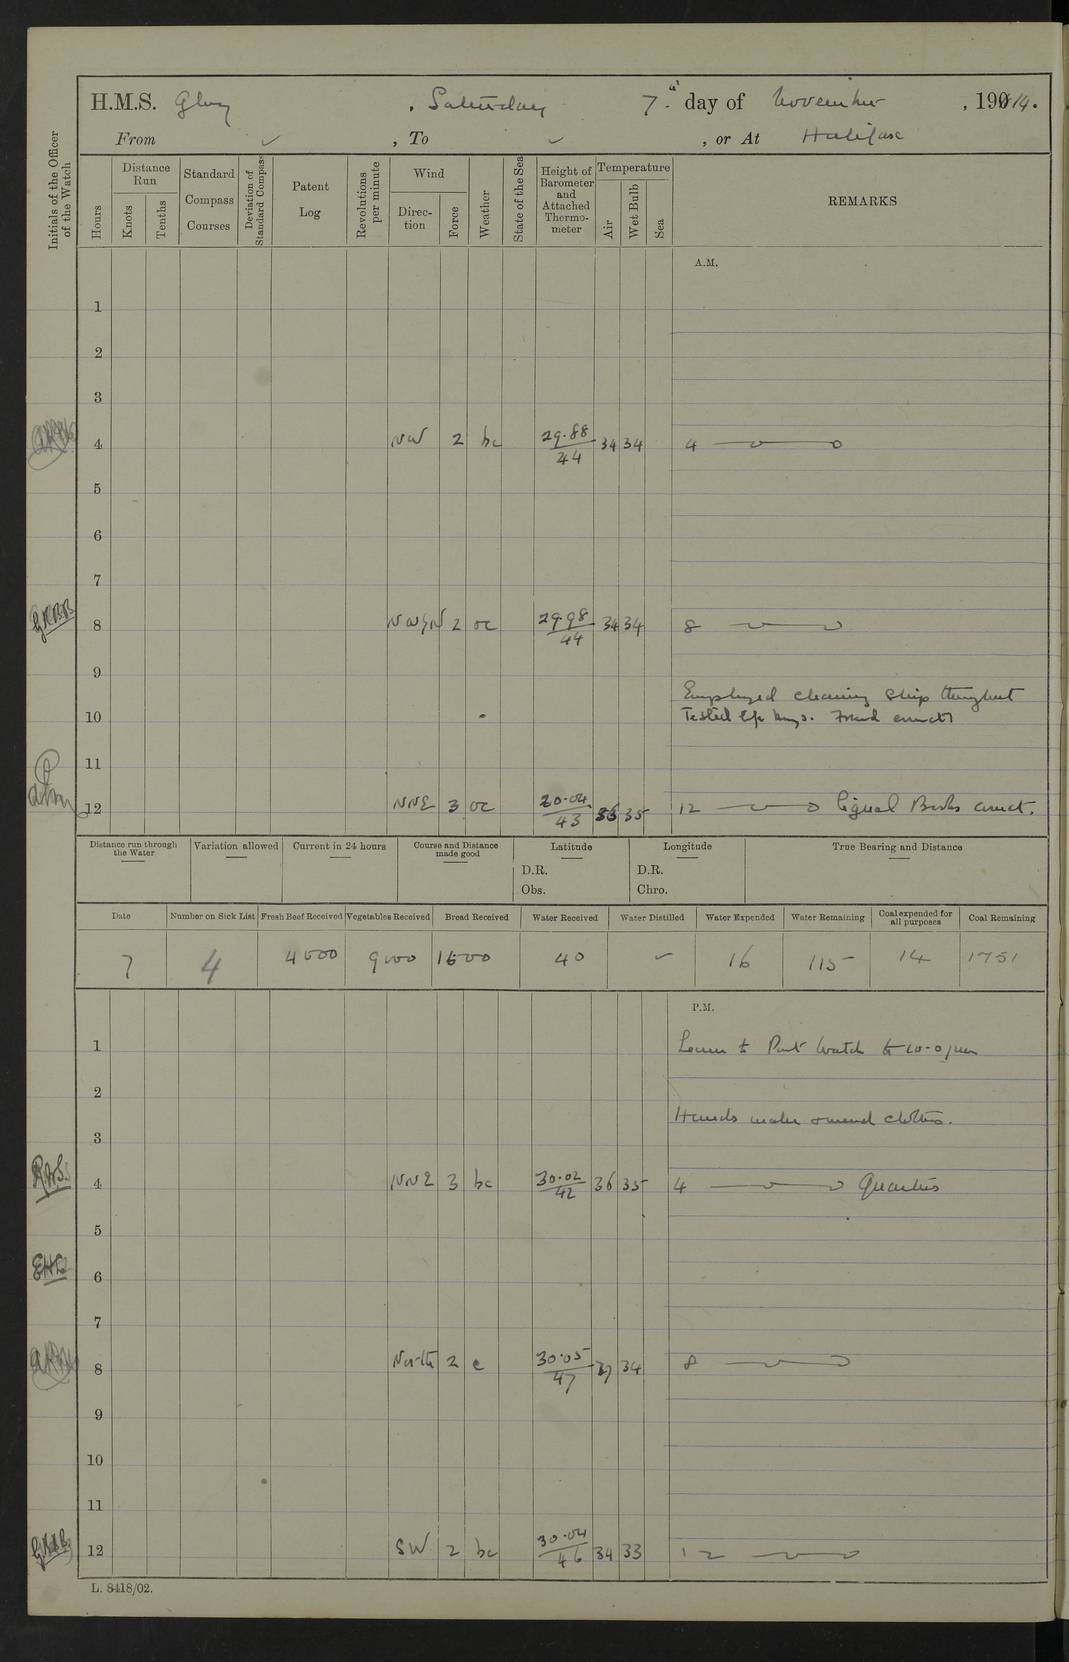 H.M.S. Glory, Saturday 7th day of November, 1914.
From ✓, To ✓, or At Halifax
Initials of the Officer of the Watch
Hours
Distance Run
Knots
Tenths
Standard Compass Courses
Deviation of Standard Compass
Patent Log
Revolutions per minute
Wind
Direction
Force
Weather
State of the Sea
Height of Barometer and Attached Thermometer
Temperature
Air
Wet Bulb
Sea
REMARKS
A.M.
1
2
3
4 NW 2 bc 29.88/44 34 34 4
5
6
7
8 NWbyN 2 oc 29.98/44 34 34 8
9
Employed cleaning ship throughout
10 Tested
11
12 NNE 3 oc 30.04/43 36 35 12 Signal Books correct.
Distance run through the Water
Variation allowed
Current in 24 hours
Course and Distance made good
Latitude
D.R.
Obs.
Longitude
D.R.
Chro.
True Bearing and Distance
Date Number on Sick List Fresh Beef Received Vegetables Received Bread Received Water Received Water Distilled Water Expended Water Remaining Coal expended for all purposes Coal Remaining
7 4 4000 9000 1500 40 ✓ 16 115 14 1751
P.M.
1 Leave to Part Watch to 10-0 pm
2
Hands make & mend clothes.
3
4 NNE 3 bc 30.02/42 36 35 4 Quarters
5
6
7
8 North 2 c 30.05/47 37 34 8
9
10
11
12 SW 2 bc 30.04/46 34 33 12
L. 8418/02.